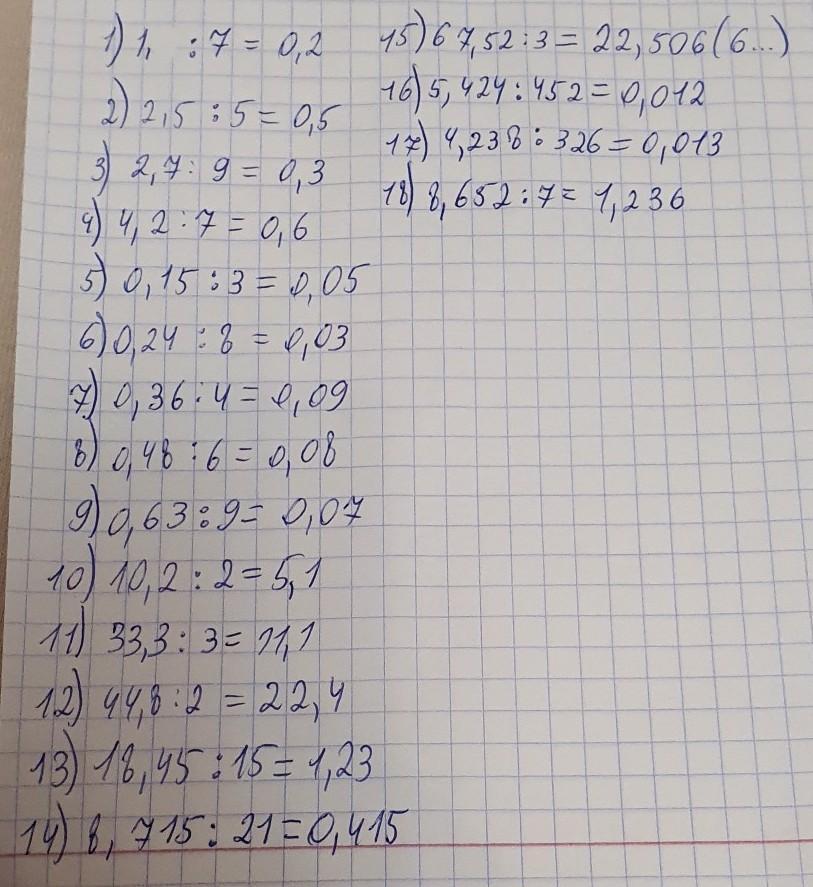 1) 1, : 7 = 0,2
2) 2,5 : 5 = 0,5
3) 2,7 : 9 = 0,3
4) 4,2 : 7 = 0,6
5) 0,15 : 3 = 0,05
6) 0,24 : 8 = 0,03
7) 0,36 : 4 = 0,09
8) 0,48 : 6 = 0,08
9) 0,63 : 9 = 0,07
10) 10,2 : 2 = 5,1
11) 33,3 : 3 = 11,1
12) 44,8 : 2 = 22,4
13) 18,45 : 15 = 1,23
14) 8,715 : 21 = 0,415
15) 67,52 : 3 = 22,506(6...)
16) 5,424 : 452 = 0,012
17) 4,238 : 326 = 0,013
18) 8,652 : 7 = 1,236